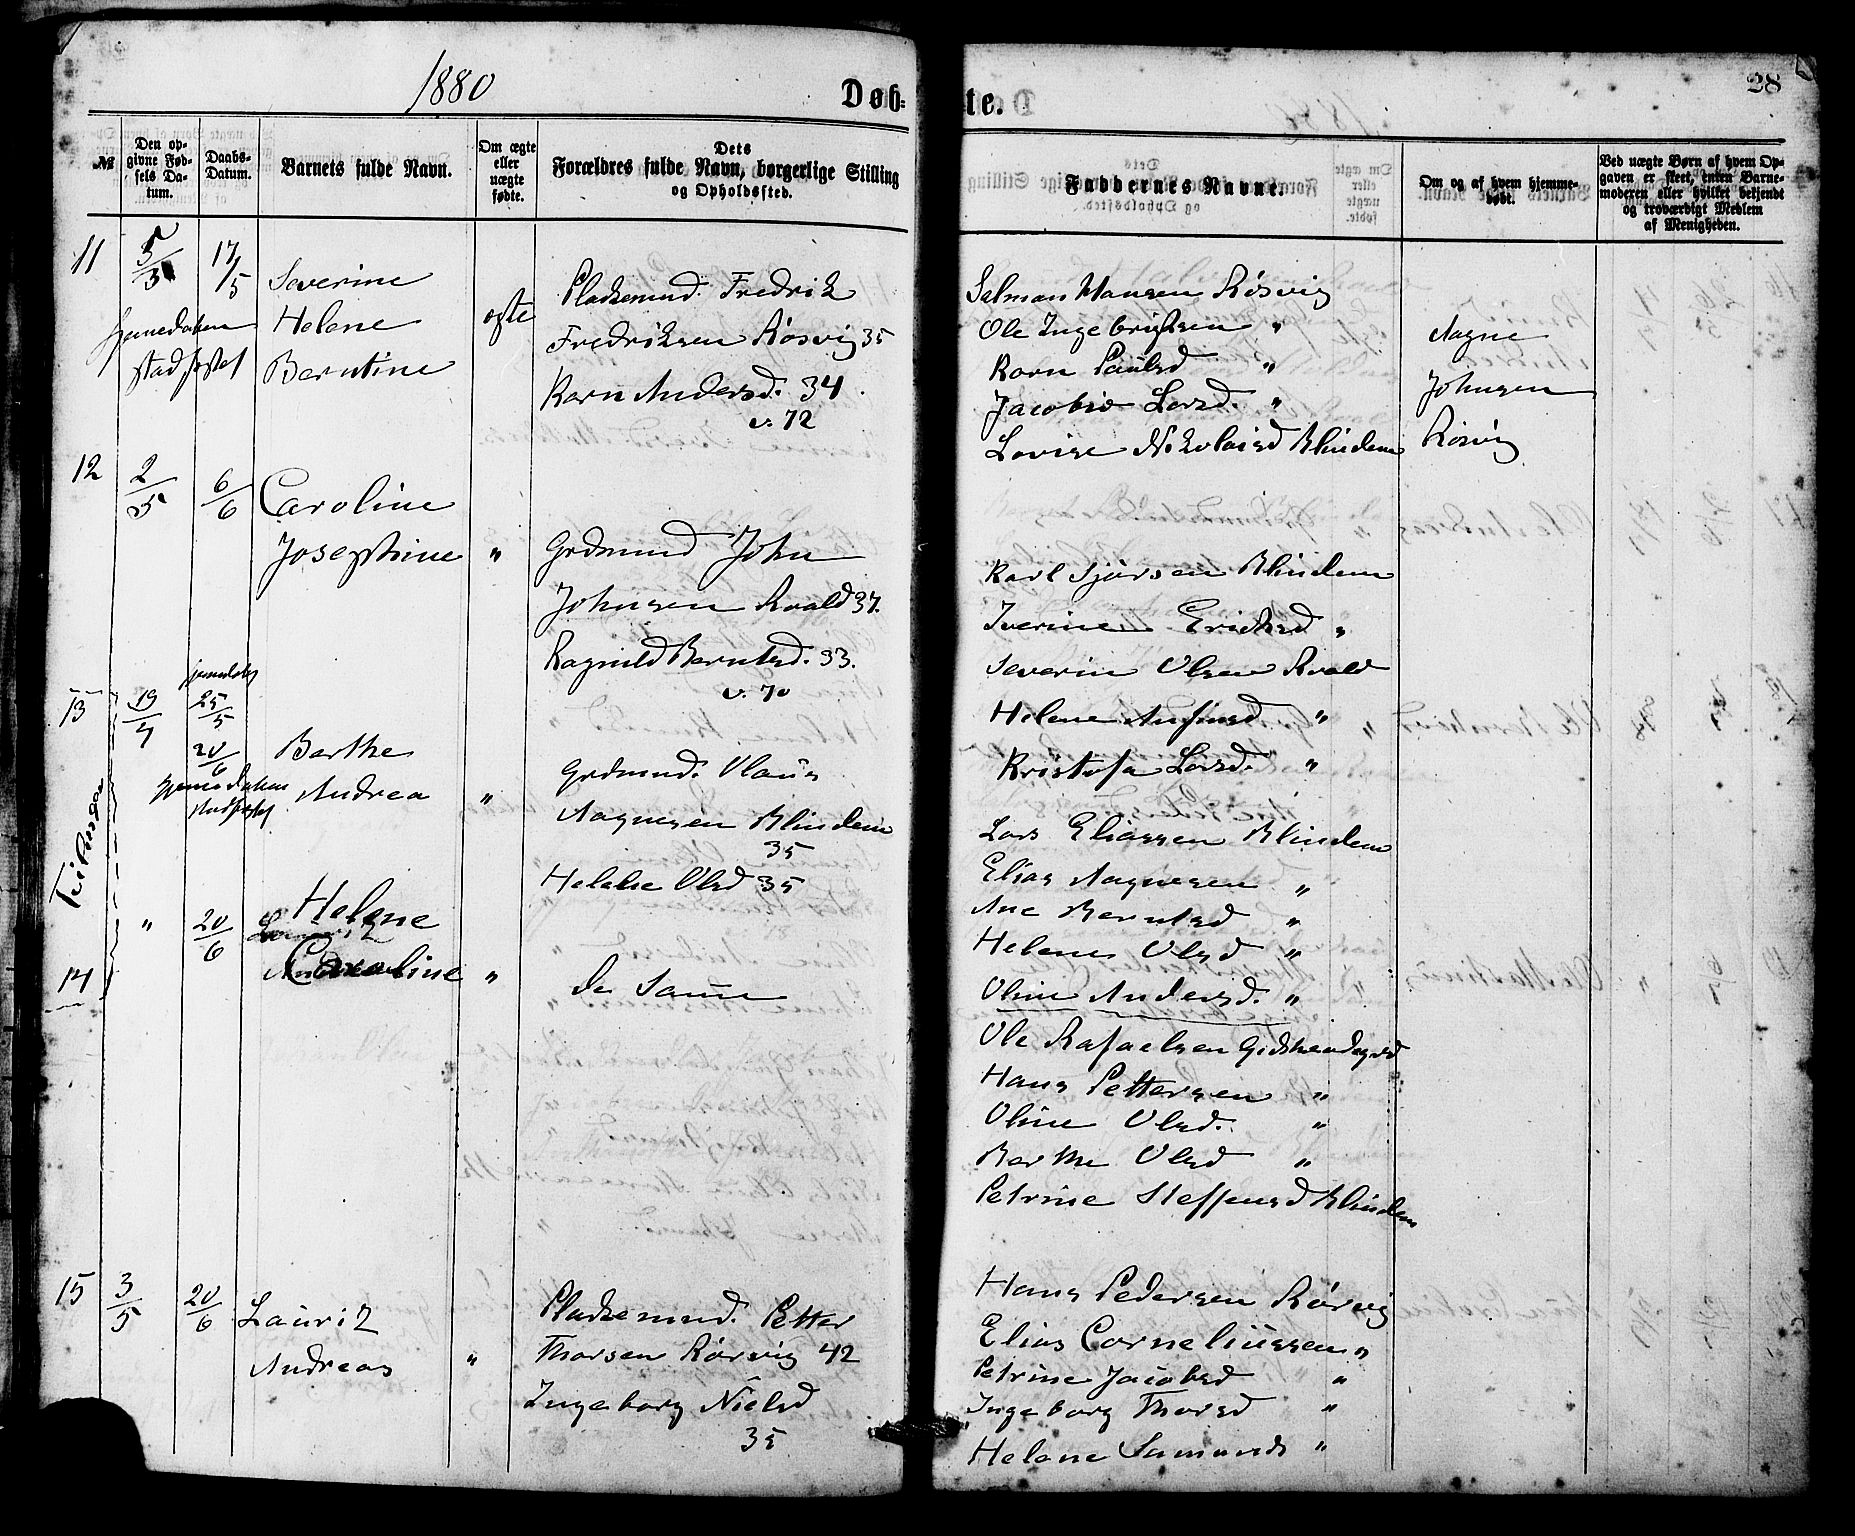 1880
Døb=
te.
28
№
Den op-
givne Fød-
sels Da-
tum.
Daabs-
Datum.
Barnets fulde Navn.
Om ægte
eller
uægte
fødte.
Dets
Forældres fulde Navn, borgerlige Stilling
og Opholdssted.
Faddernes Navne.
Om og af hvem hjemme-
døbt.
Ved uægte Børn af hvem Op-
gaven er skeet, enten Barne-
moderen eller hvilket bekjendt
og troværdigt Medlem
af Menigheden.
11
5/3
17/5
hjemmedaaben
stadfæstet
Severine
Helene
Berntine
ægte
Pladsemd. Fredrik
Fredriksen Røsvig 35
Karn Andersd. 34
v. 72
Salman Hansen Røsvig
Ole Ingebrigtsen "
Karn Paulsd "
Jacobie Larsd. "
Lovise Nikolaisd Blindem
Aagne
Johnsen
Røsvig
12
2/5
6/6
Caroline
Josephine
"
Grdmand John
Johnsen Roald 37.
Ragnild Berntsd. 33.
v. 70
Karl Sjørsen Blindem
Iverine Eriksd "
Severin Olsen Roald
Helene Anfinsd "
Kristofa Larsd. "
Tvillinger
13
19/4
hjemmedøbt
25/5
20/6
hjemmedaaben
stadfæstet
Barthe
Andrea
"
Grdmand. Olaus
Aagnesen Blindem
35
Helene Olsd 35
Lars Eliassen Blindem
Elias Aagnesen "
Ane Berntsd "
Helene Olsd "
Oline Andersd. "
14
"
20/6
Helene
Caroline
"
de Samme
Ole Rafaelsen Gidskeødegrd
Hans Pettersen "
Oline Olsd. "
Berthe Olsd "
Petrine Steffensd Blindem
15
3/5
20/6
Lauritz
Andreas
"
Pladsemand. Petter
Thorsen Rørvig 42
Ingeborg Nielsd
35
Hans Pedersen Rørvig
Elias Corneliussen "
Petrine Jacobsd "
Ingeborg Thorsd "
Helene Samundsd "